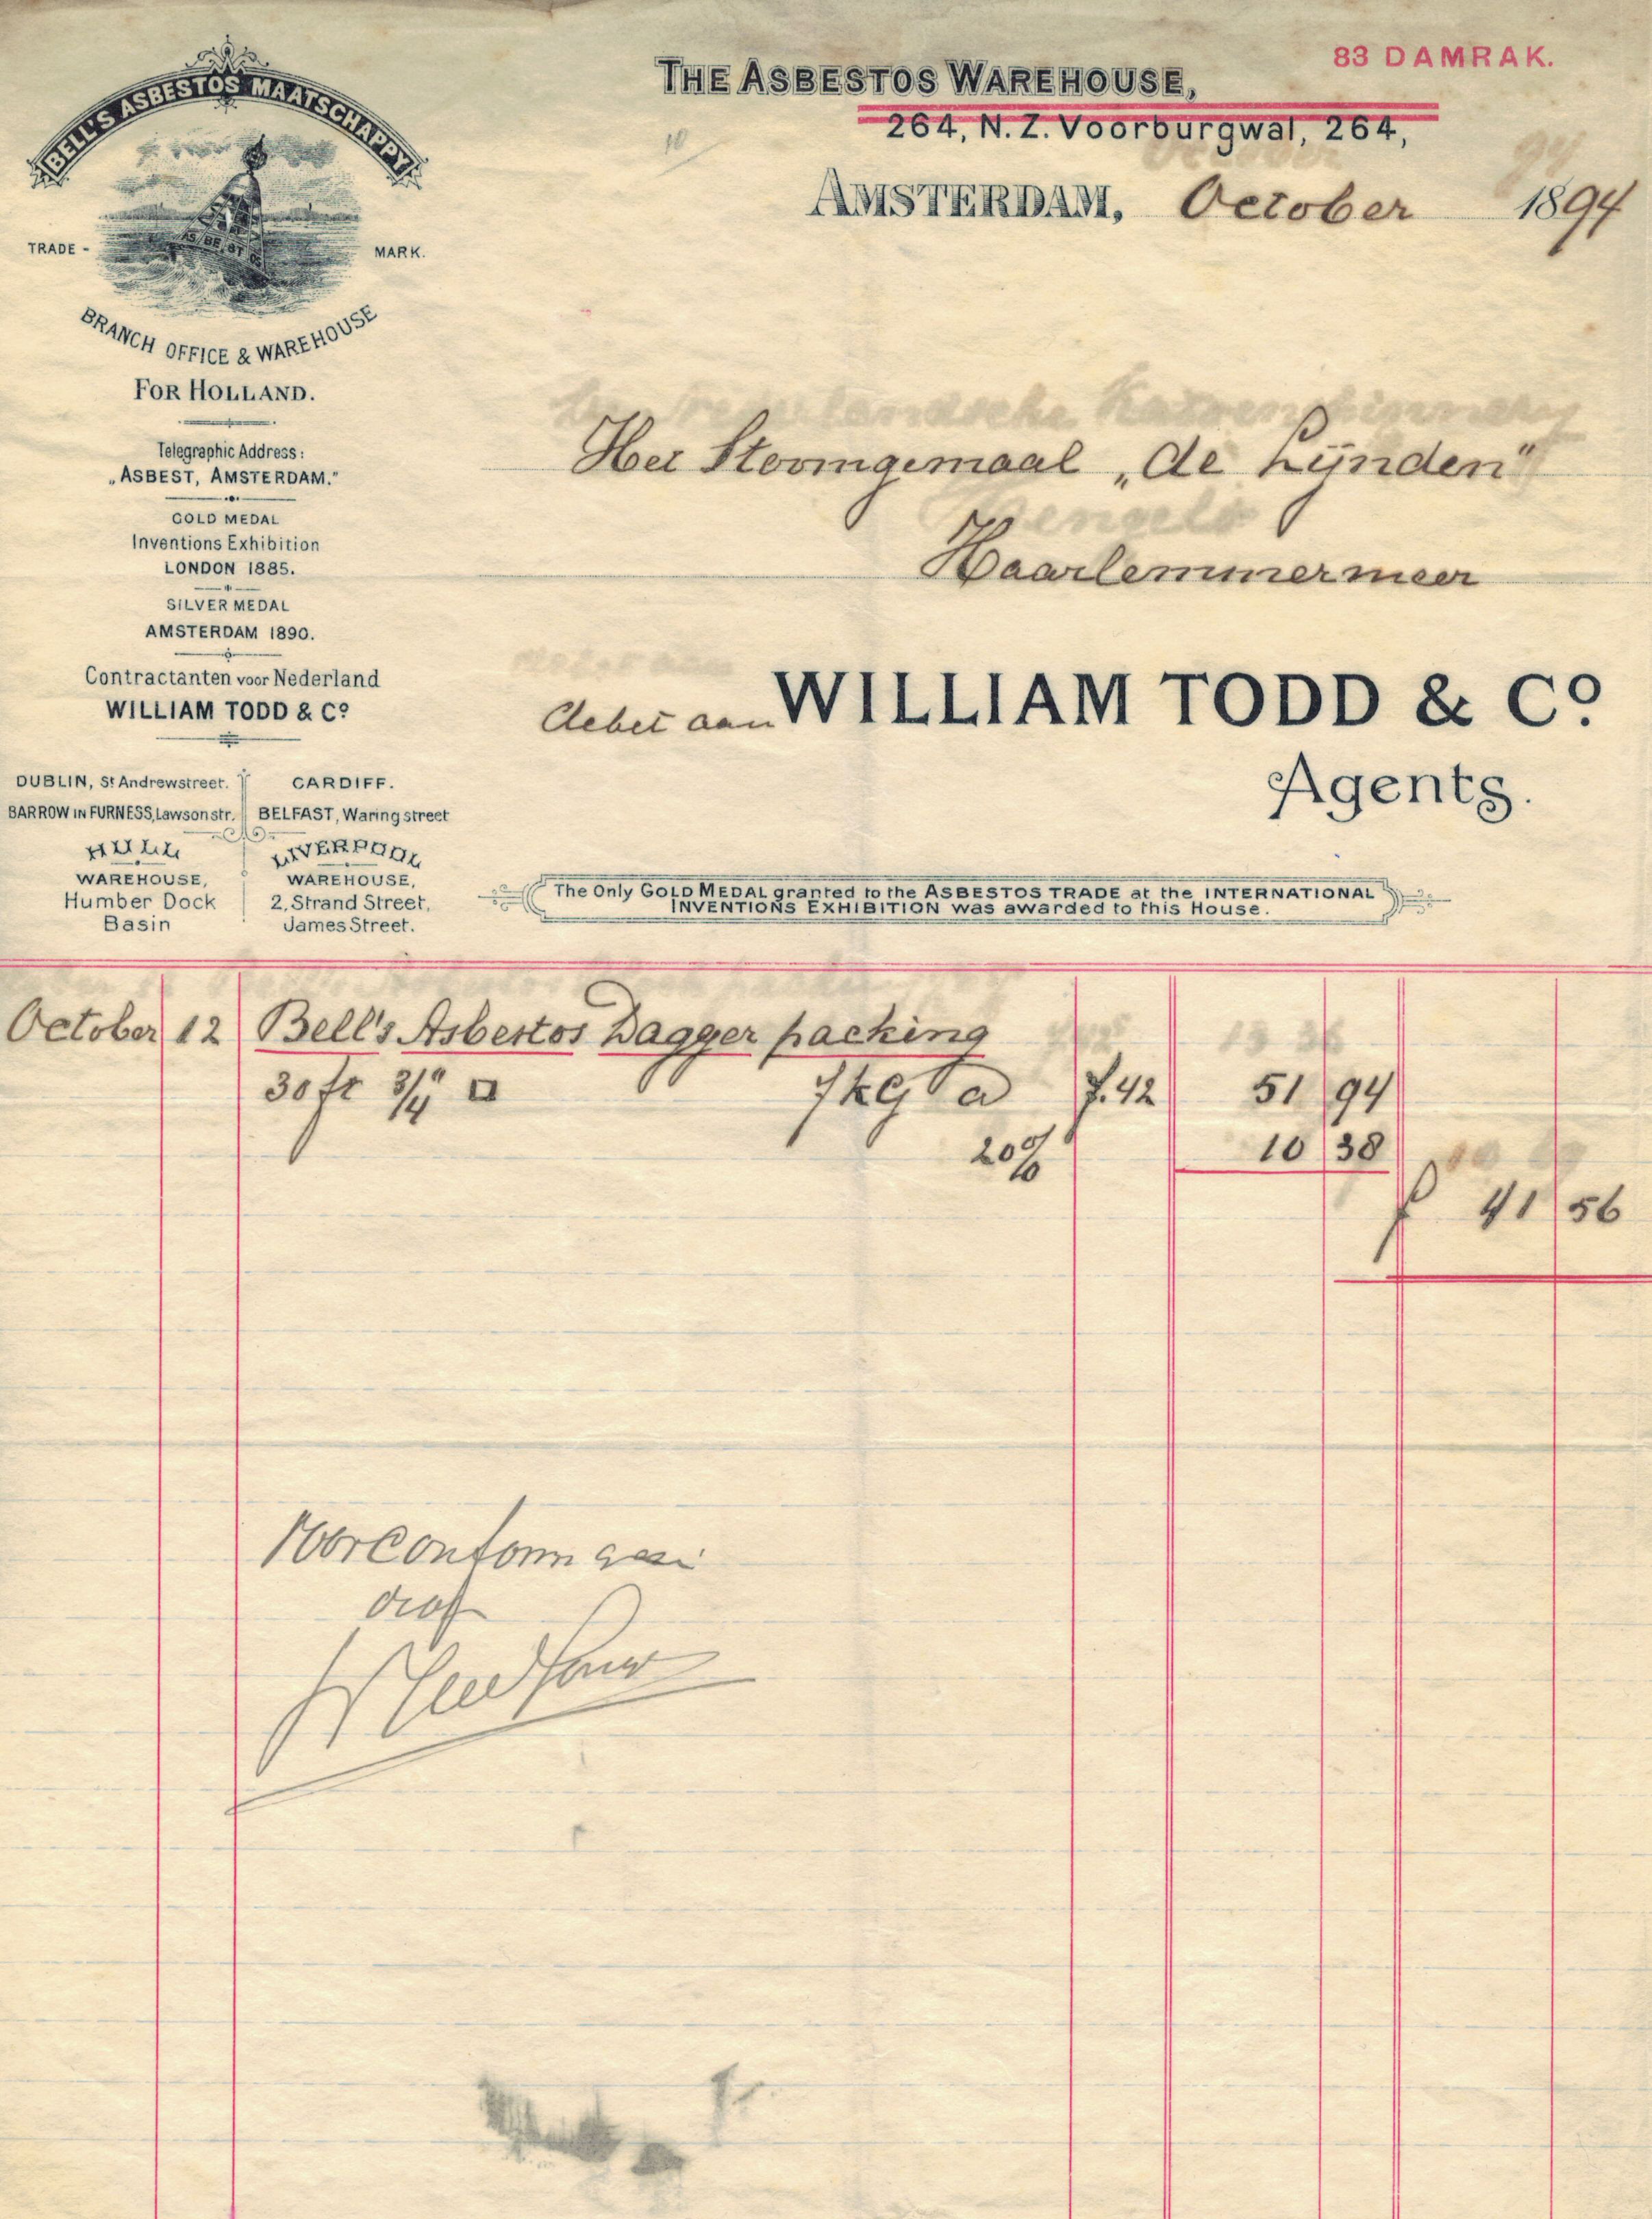 83 DAMRAK.
THE ASBESTOS WAREHOUSE,
264, N. Z. Voorburgwal, 264,
10
AMSTERDAM, October 1894
BELL'S ASBESTOS MAATSCHAPPY
ASBESTOS
TRADE - MARK.
BRANCH OFFICE & WAREHOUSE
FOR HOLLAND.
Telegraphic Address:
„ASBEST, AMSTERDAM."
GOLD MEDAL
Inventions Exhibition
LONDON 1885.
SILVER MEDAL
AMSTERDAM 1890.
Contractanten voor Nederland
WILLIAM TODD & Cº
DUBLIN, St Andrewstreet.
BARROW IN FURNESS, Lawsonstr.
HULL
WAREHOUSE,
Humber Dock
Basin
CARDIFF.
BELFAST, Waring street
LIVERPOOL
WAREHOUSE,
2, Strand Street,
James Street.
Het Stoomgemaal „de Lijnden"
Hengelo
Haarlemmermeer
debet aan WILLIAM TODD & Cº
Agents.
The Only GOLD MEDAL granted to the ASBESTOS TRADE at the INTERNATIONAL
INVENTIONS EXHIBITION was awarded to this House.
October 12 Bell's Asbestos Dagger packing
30 ft 3/4" □ 7 kg a 7.42 51 94
20% 10 38
f 41 56
Voor conform